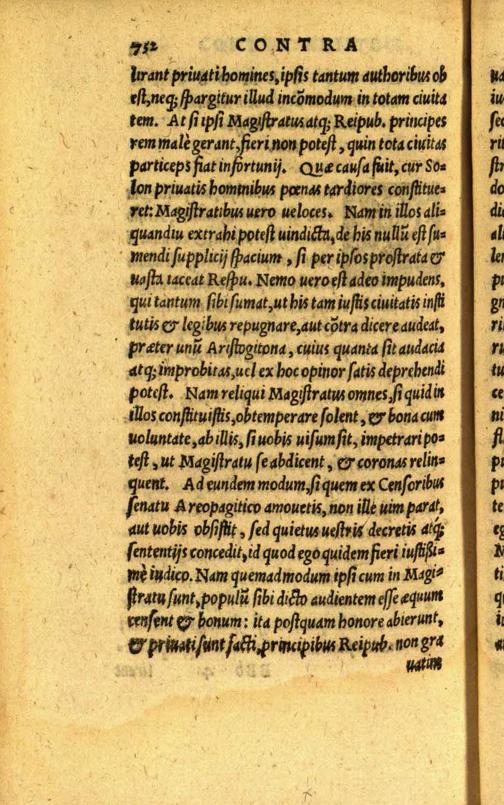 752 CONTRA
lirant priuati homines, ipsis tantum authoribus ob
est, neq; spargitur illud incõmodum in totam ciuita
tem. At si ipsi Magistratus atq; Reipub. principes
rem malè gerant, fieri non potest, quin tota ciuitas
particeps fiat infortunij. Quæ causa fuit, cur So=
lon priuatis hominibus pœnas tardiores constitue=
ret: Magistratibus uero ueloces. Nam in illos ali=
quandiu extrahi potest uindicta, de his nullũ est su=
mendi supplicij spacium, si per ipsos prostrata &
uasta iaceat Respu. Nemo uero est adeo impudens,
qui tantum sibi sumat, ut his tam iustis ciuitatis insti
tutis & legibus repugnare, aut cõtra dicere audeat,
præter unũ Aristogitona, cuius quanta sit audacia
atq; improbitas, uel ex hoc opinor satis deprehendi
potest. Nam reliqui Magistratus omnes, si quid in
illos constituistis, obtemperare solent, & bona cum
uoluntate, ab illis, si uobis uisum sit, impetrari po=
test, ut Magistratu se abdicent, & coronas relin=
quent. Ad eundem modum, si quem ex Censoribus
senatu Areopagitico amouetis, non ille uim parat,
aut uobis obsistit, sed quietus uestris decretis atq;
sententijs concedit, id quod ego quidem fieri iustißi=
mè iudico. Nam quemadmodum ipsi cum in Magi=
stratu sunt, populũ sibi dicto audientem esse æquum
censent & bonum: ita postquam honore abierunt,
& priuati sunt facti, principibus Reipub. non gra
uatim